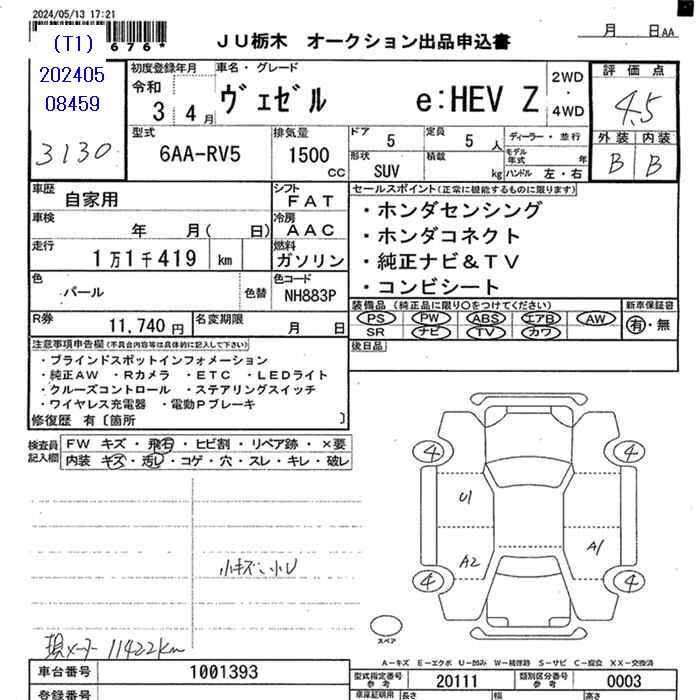 2024/05/13 17:21
(T1)
202405
08459
*676*
JU栃木 オークション出品申込書
月 日AA
3130
初度登録年月
令和
3 4月
車名・グレード
ヴェゼル e:HEV Z
2WD
・
4WD
評価点
4.5
外装 内装
B B
型式
6AA-RV5
排気量
1500
cc
ドア
5
定員
5 人
形状
SUV
積載
kg
ディーラー・並行
モデル年式 年
ハンドル 左・右
車歴
自家用
シフト
FAT
車検
年 月( 日)
冷房
AAC
走行
1万1千419 km
燃料
ガソリン
色
パール
色替
色コード
NH883P
R券
11,740円
名変期限
月 日
セールスポイント(正常に機能するものに限ります)
・ホンダセンシング
・ホンダコネクト
・純正ナビ&TV
・コンビシート
装備品 (純正品に限り○をつけてください)
PS PW ABS エアB AW
SR ナビ TV カワ
新車保証書
有・無
後日品
注意事項申告欄(不具合内容等は具体的に記入して下さい)
・ブラインドスポットインフォメーション
・純正AW ・Rカメラ ・ETC ・LEDライト
・クルーズコントロール ・ステアリングスイッチ
・ワイヤレス充電器 ・電動Pブレーキ
修復歴 有〔箇所 〕
検査員記入欄
FW キズ・飛石・ヒビ割・リペア跡・×要
内装 キズ・汚れ・コゲ・穴・スレ・キレ・破レ
小キズ、小U
現メーター 11422km
4 4
U1
A2 A1
4 4
スペア
A-キズ E-エクボ U-凹み W-補修跡 S-サビ C-腐食 XX-交換済
車台番号
1001393
登録番号
型式指定番号
参考
20111
類別区分番号
参考
0003
車庫証明用
長さ 幅 高さ